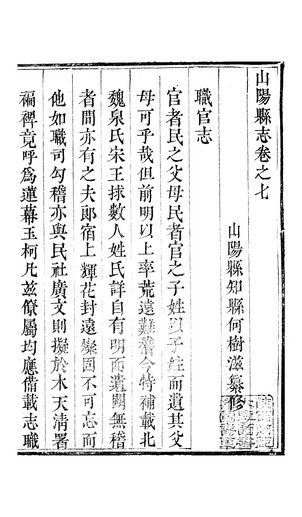 山陽縣志卷之七
山陽縣知縣何樹滋纂修
職官志
官者民之父母民者官之子姓以子姓而遺其父
母可乎哉但前明以上率荒遠難稽今特補載北
魏泉氏宋王球數人姓氏詳自有明而遺闕無稽
者間亦有之夫郎宿上輝花封遠燦固不可忘而
他如職司勾稽亦與民社廣文則擬於木天清署
褊裨竟呼為蓮幕玉柯凡兹僚屬均應備載志職